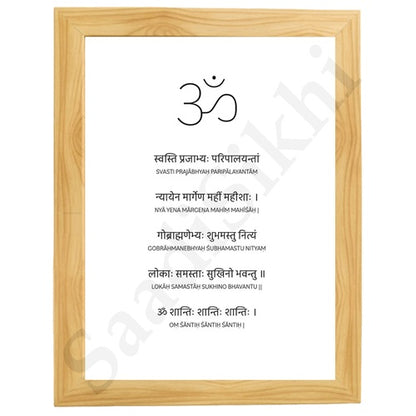 ॐ
स्वस्ति प्रजाभ्यः परिपालयन्तां
SVASTI PRAJĀBHYAḤ PARIPĀLAYANTĀM
न्यायेन मार्गेण महीं महीशाः ।
NYĀ YENA MĀRGENA MAHĪM MAHĪŚĀḤ |
गोब्राह्मणेभ्यः शुभमस्तु नित्यं
GOBRĀHMANEBHYAḤ ŚUBHAMASTU NITYAM
लोकाः समस्ताः सुखिनो भवन्तु ॥
LOKĀḤ SAMASTĀḤ SUKHINO BHAVANTU ||
ॐ शान्तिः शान्तिः शान्तिः ।
OM ŚĀNTIḤ ŚĀNTIḤ ŚĀNTIḤ |
Saanskriti Sikhi